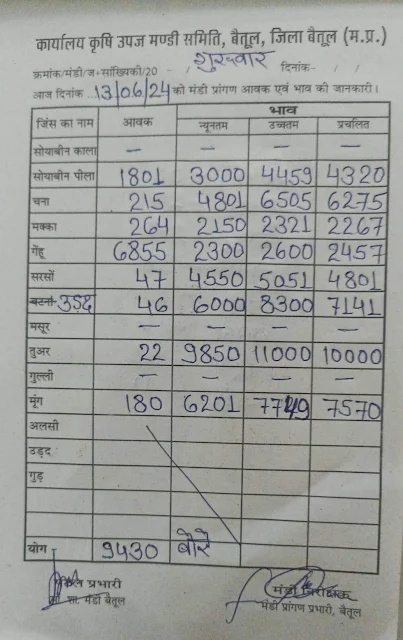 कार्यालय कृषि उपज मण्डी समिति, बैतूल, जिला बैतूल (म.प्र.)
क्रमांक/मंडी/ज+सांख्यिकी/20 - / शुक्रवार दिनांक- / /
आज दिनांक ..13/06/24 को मंडी प्रांगण आवक एवं भाव की जानकारी।
जिंस का नाम आवक भाव
न्यूनतम उच्चतम प्रचलित
सोयाबीन काला — — — —
सोयाबीन पीला 1801 3000 4459 4320
चना 215 4801 6505 6275
मक्का 264 2150 2321 2267
गेंहू 6855 2300 2600 2457
सरसों 47 4550 5051 4801
बटरी उड़द 46 6000 8300 7141
मसूर — — — —
तुअर 22 9850 11000 10000
गुल्ली — — — —
मूंग 180 6201 7749 7570
अलसी
उड़द
गुड़
योग 9430 बोरे
प्रभारी मंडी निरीक्षक
मंडी बैतूल मंडी प्रांगण प्रभारी, बैतूल